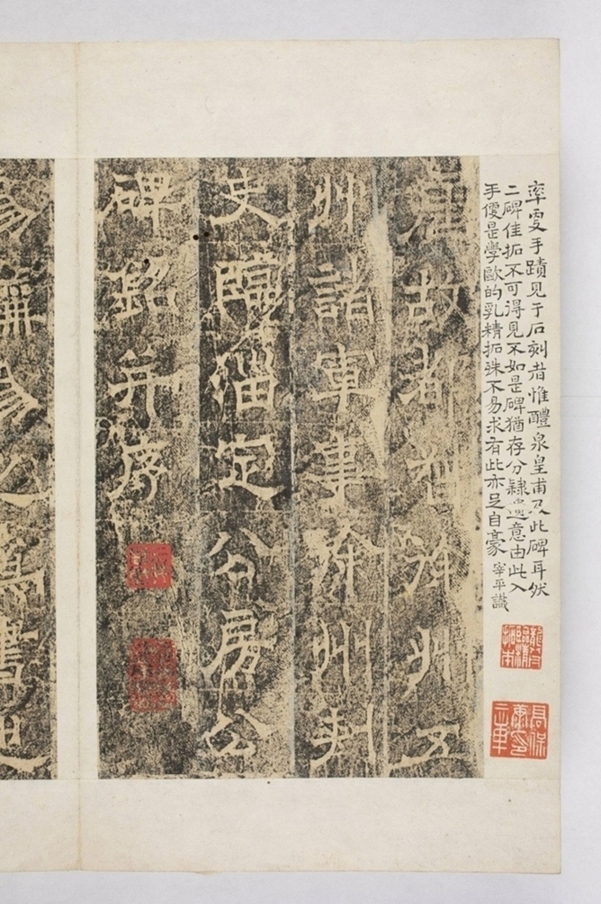 率更手蹟見于石刻者惟醴泉皇甫及此碑耳然
二碑佳拓不可得見不如是碑猶存分隸遺意由此入
手便是學歐的乳精拓殊不易求有此亦足自豪 宰平識
唐故都督徐州五
州諸軍事徐州刺
史臨淄定公房公
碑銘并序